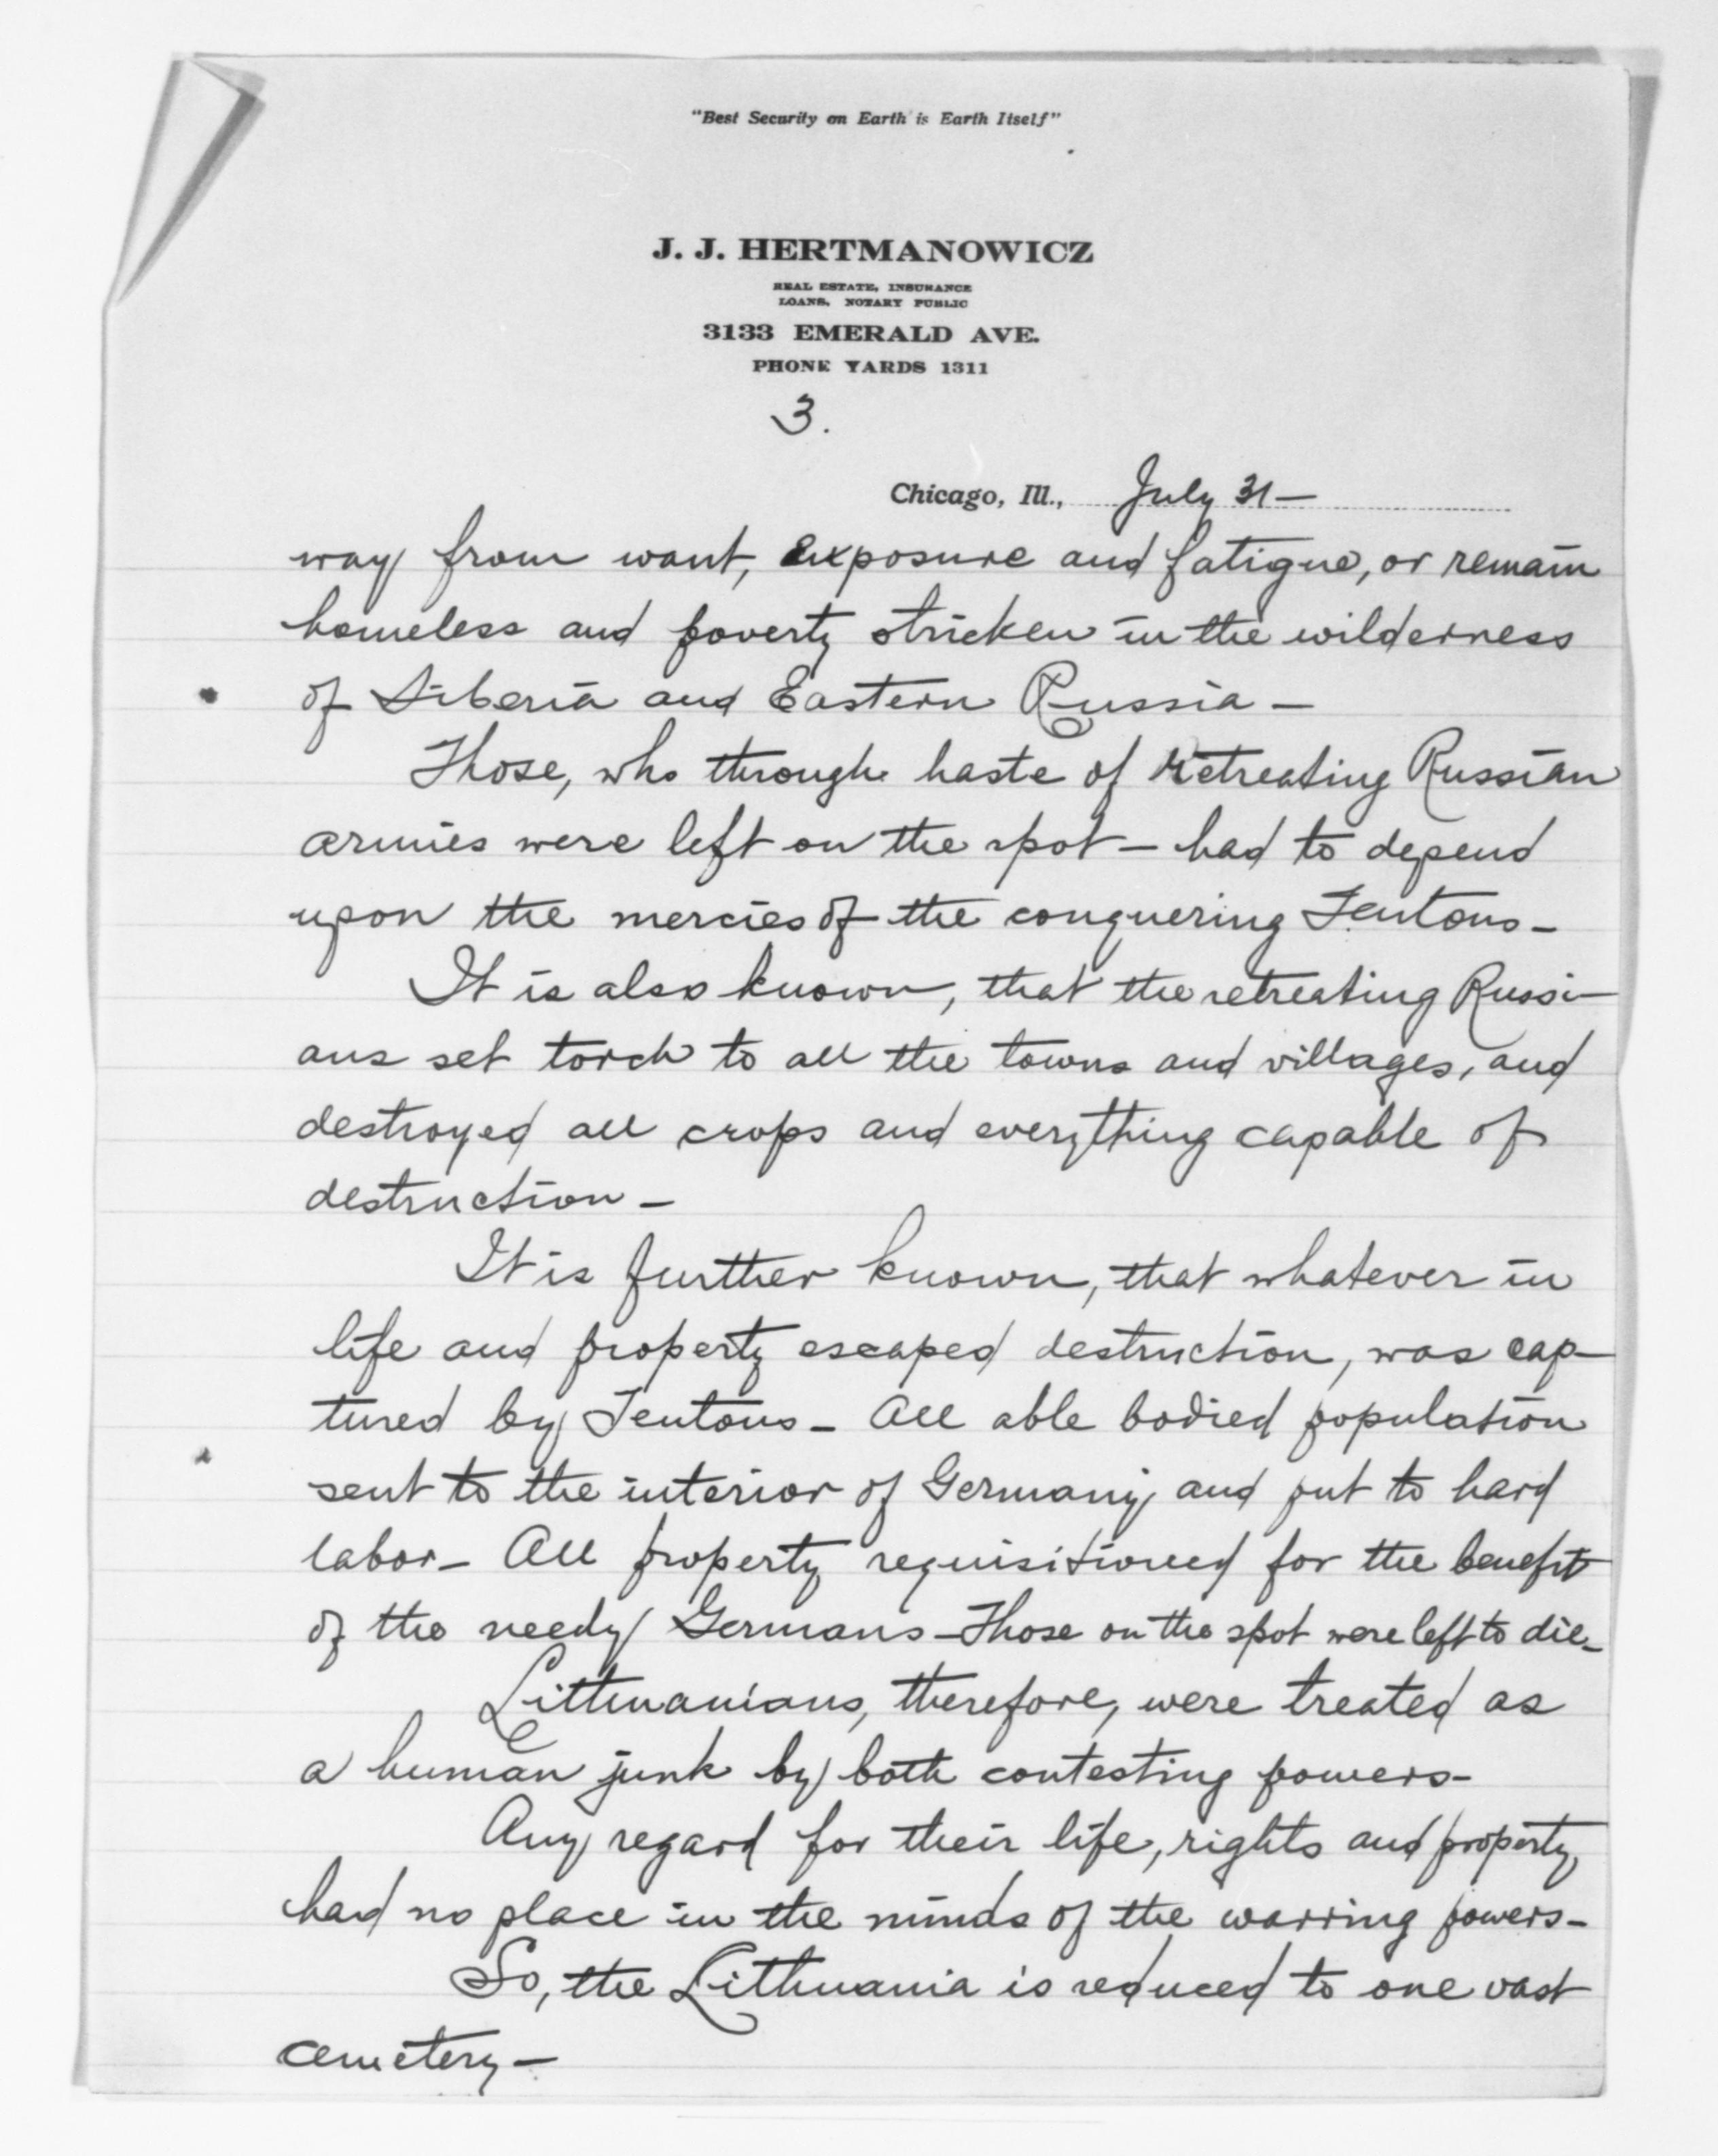 "Best Security on Earth is Earth Itself"
J. J. HERTMANOWICZ
REAL ESTATE, INSURANCE
LOANS, NOTARY PUBLIC
3133 EMERALD AVE.
PHONE YARDS 1311
3.
Chicago, Ill., July 31—
way from want, exposure and fatigue, or remain
homeless and poverty stricken in the wilderness
of Siberia and Eastern Russia —
Those, who through haste of retreating Russian
armies were left on the spot — had to depend
upon the mercies of the conquering Teutons —
It is also known, that the retreating Russi-
ans set torch to all the towns and villages, and
destroyed all crops and everything capable of
destruction —
It is further known, that whatever in
life and property escaped destruction, was cap-
tured by Teutons — All able bodied population
sent to the interior of Germany and put to hard
labor — All property requisitioned for the benefit
of the needy Germans — Those on the spot were left to die —
Lithuanians, therefore, were treated as
a human junk by both contesting powers —
Any regard for their life, rights and property,
had no place in the minds of the warring powers —
So, the Lithuania is reduced to one vast
cemetery —